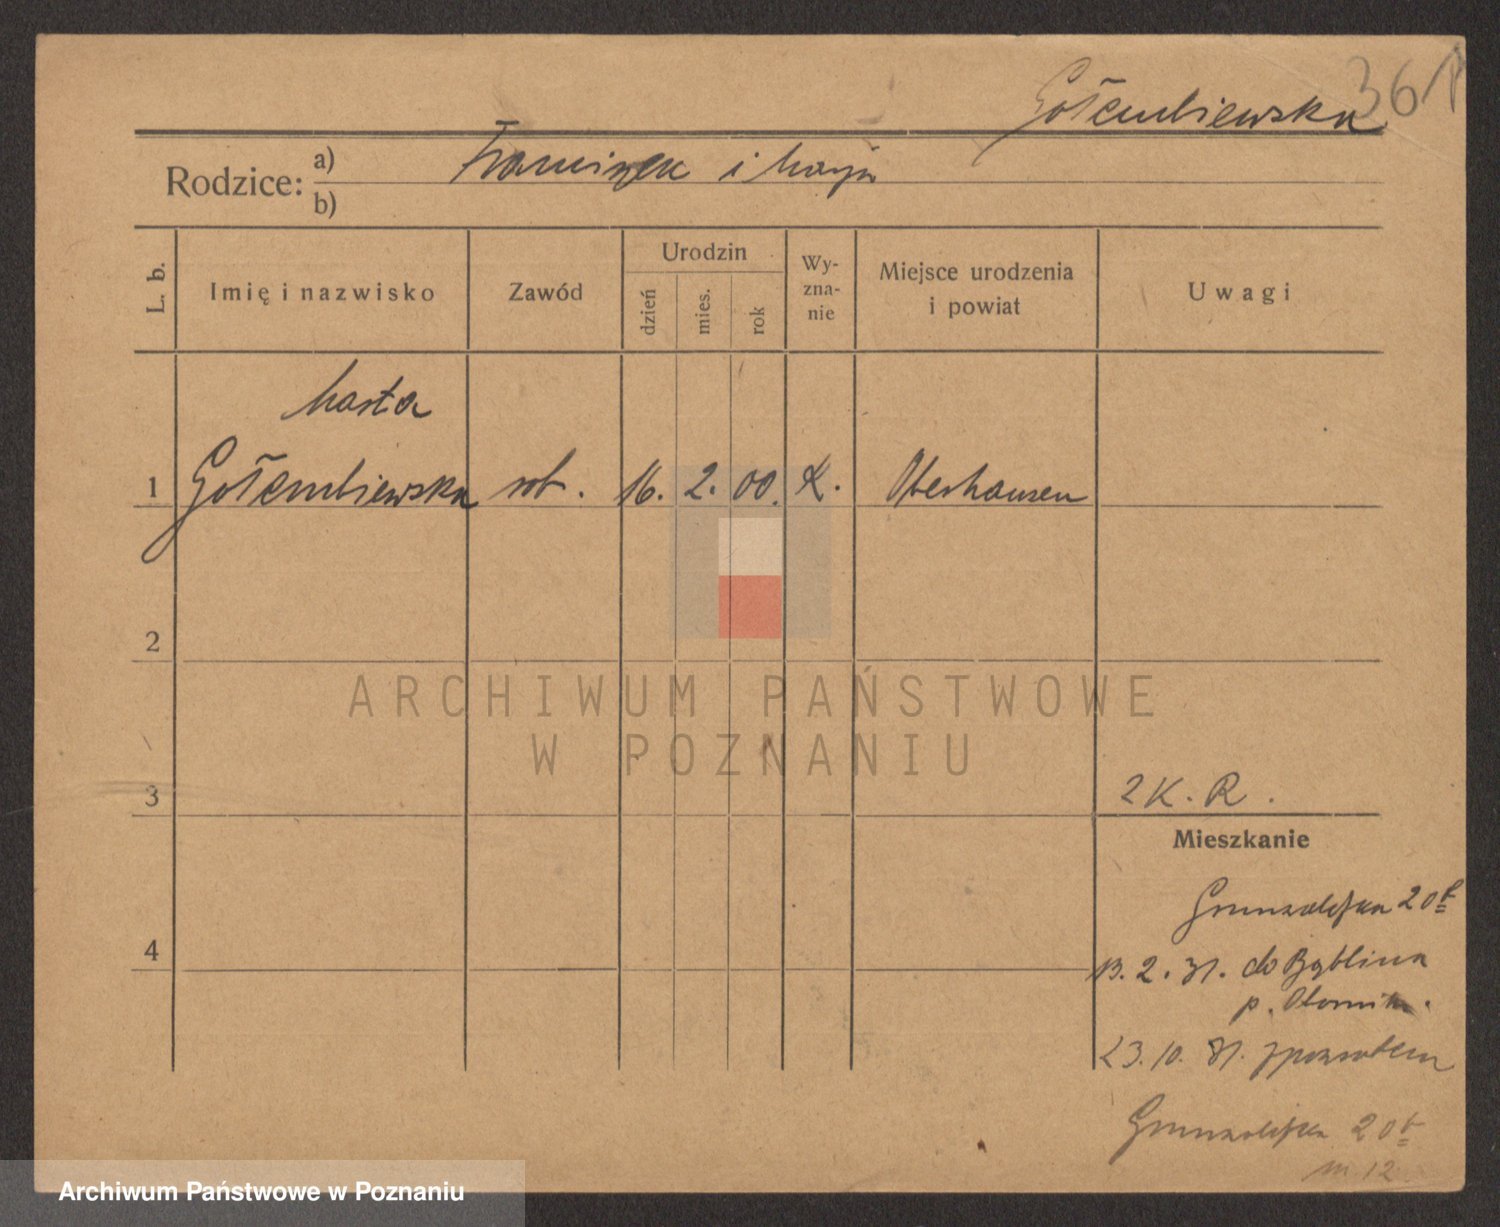 361
Gołembiewska
Rodzice: a) Franciszek i Marja
b)
L. b.
Imię i nazwisko
Zawód
Urodzin
dzień
mies.
rok
Wy-
zna-
nie
Miejsce urodzenia
i powiat
Uwagi
Marta
1 Gołembiewska rob. 16. 2. 00. K. Oberhausen
2
ARCHIWUM PAŃSTWOWE
W POZNANIU
3
2 K. R.
Mieszkanie
Grunwaldzka 20
4
13. 2. 31. do
p. Oborniki.
23. 10. 31. z powrotem
Grunwaldzka 20
m 12
Archiwum Państwowe w Poznaniu